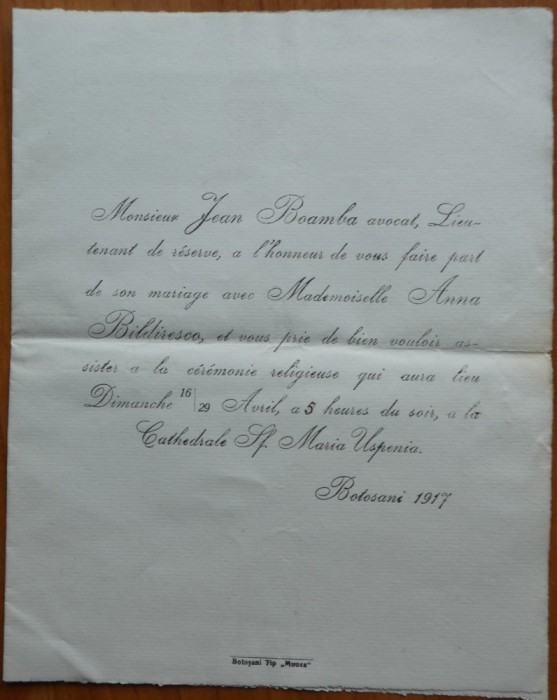 Monsieur Jean Boamba avocat, Lieu-
tenant de réserve, a l'honneur de vous faire part
de son mariage avec Mademoiselle Anna
Bildiresco, et vous prie de bien vouloir as-
sister a la cérémonie religieuse qui aura lieu
Dimanche 16/29 Avril, a 5 heures du soir, a la
Cathedrale Sf. Maria Uspenia.
Botosani 1917
Botoşani Tip „Mircea"